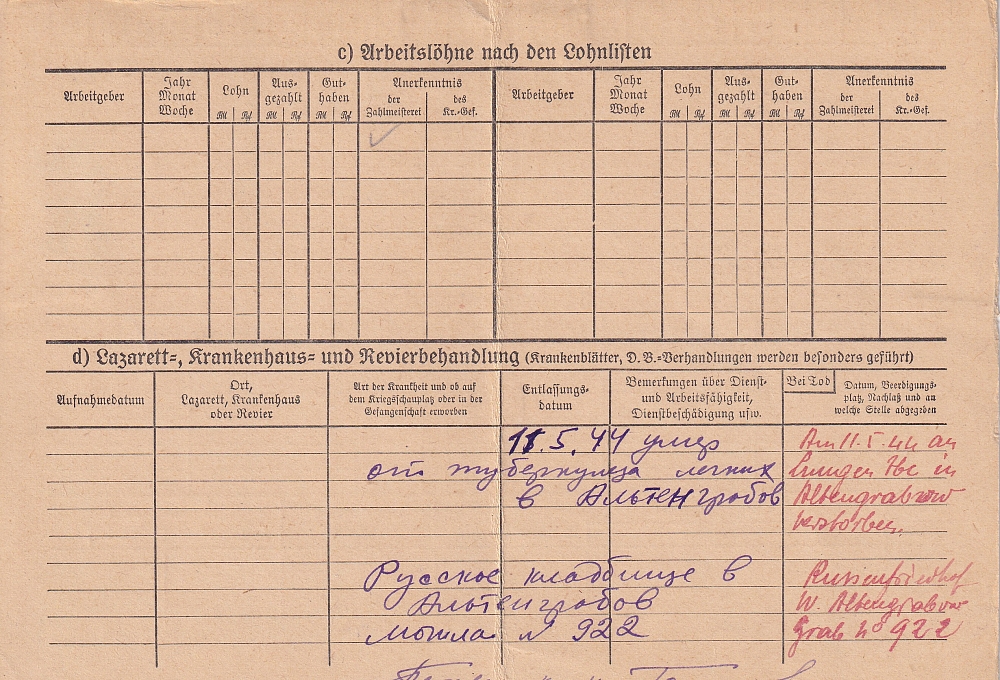 c) Arbeitslöhne nach den Lohnlisten
Arbeitgeber
Jahr
Monat
Woche
Lohn
RM Rpf
Aus-
gezahlt
RM Rpf
Gut-
haben
RM Rpf
Anerkenntnis
der
Zahlmeisterei
des
Kr.-Gef.
Arbeitgeber
Jahr
Monat
Woche
Lohn
RM Rpf
Aus-
gezahlt
RM Rpf
Gut-
haben
RM Rpf
Anerkenntnis
der
Zahlmeisterei
des
Kr.-Gef.
d) Lazarett-, Krankenhaus- und Revierbehandlung (Krankenblätter, D. B.-Verhandlungen werden besonders geführt)
Aufnahmedatum
Ort,
Lazarett, Krankenhaus
oder Revier
Art der Krankheit und ob auf
dem Kriegsschauplatz oder in der
Gefangenschaft erworben
Entlassungs-
datum
Bemerkungen über Dienst-
und Arbeitsfähigkeit,
Dienstbeschädigung usw.
Bei Tod
Datum, Beerdigungs-
platz, Nachlaß und an
welche Stelle abgegeben
11.5.44 умер
от туберкулеза легких
в Альтенграбов
Русское кладбище в
Альтенграбов
могила № 922
Am 11.5.44 an
Lungen Tbc in
Altengrabow
verstorben.
Russenfriedhof
W. Altengrabow
Grab No 922